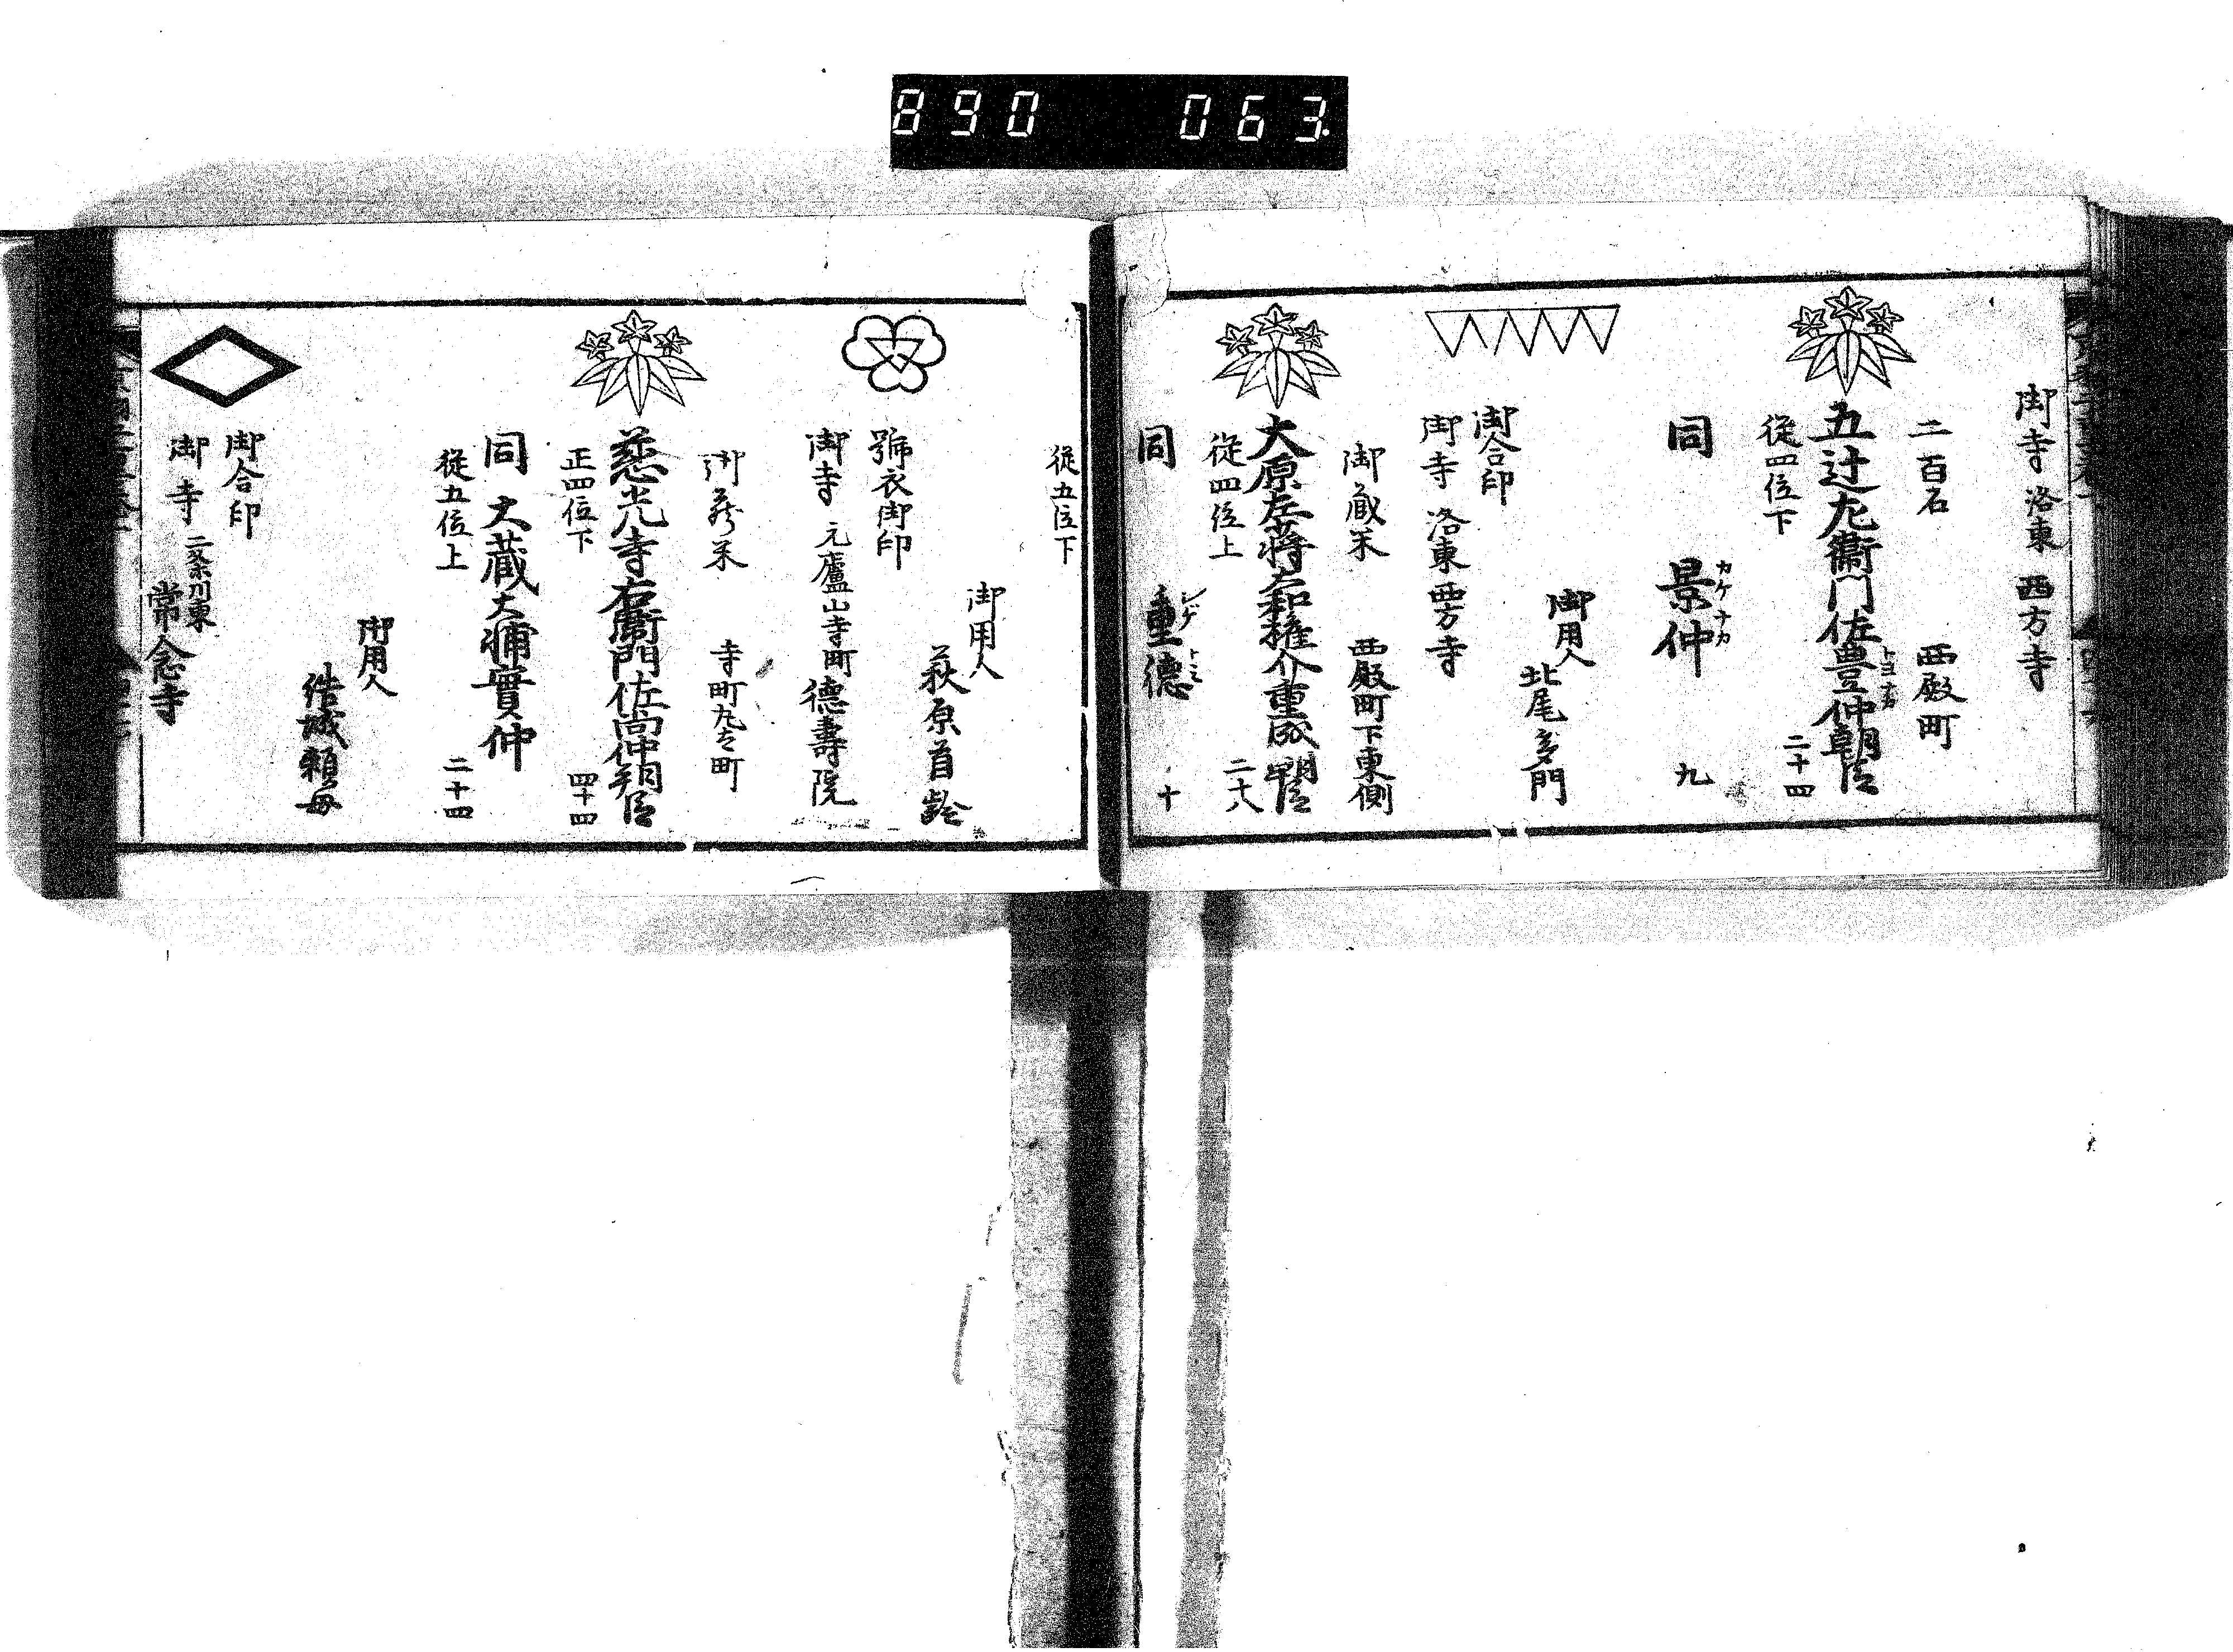 890 063
御寺 洛東 西方寺
二百石 西殿町
五辻左衞門佐豊仲朝臣
トヨナカ
從四位下 二十四
同 景仲 九
カケナカ
御用人
北尾多門
御合印
御寺 洛東西方寺
御蔵米 西殿町下東側
大原左少将 重成朝臣
從四位上 二十八
同 重德 十
シゲトミ
從五位下
御用人
萩原首齡
號衣御印
御寺 元廬山寺町 德壽院
御蔵米 寺町丸太町
慈光寺右衞門佐尚仲朝臣
正四位下 四十四
同 大蔵大輔實仲
從五位上 二十四
御用人
結城頼母
御合印
御寺 二条川東
常念寺